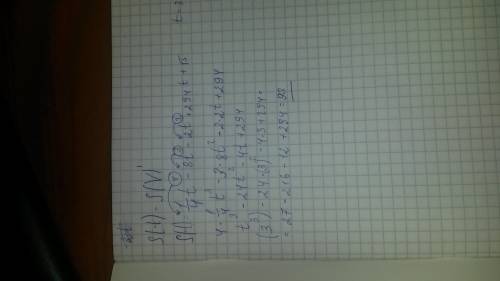 S(t) - S(V)'
S(t) = 1/4 t⁴ - 8t³ - 2t² + 294t + 15 t=3
4·1/4 t³ - 3·8t² - 2·2t + 294
t³ - 24t² - 4t + 294
(3³) - 24·(3)² - 4·3 + 294 =
= 27 - 216 - 12 + 294 = 93